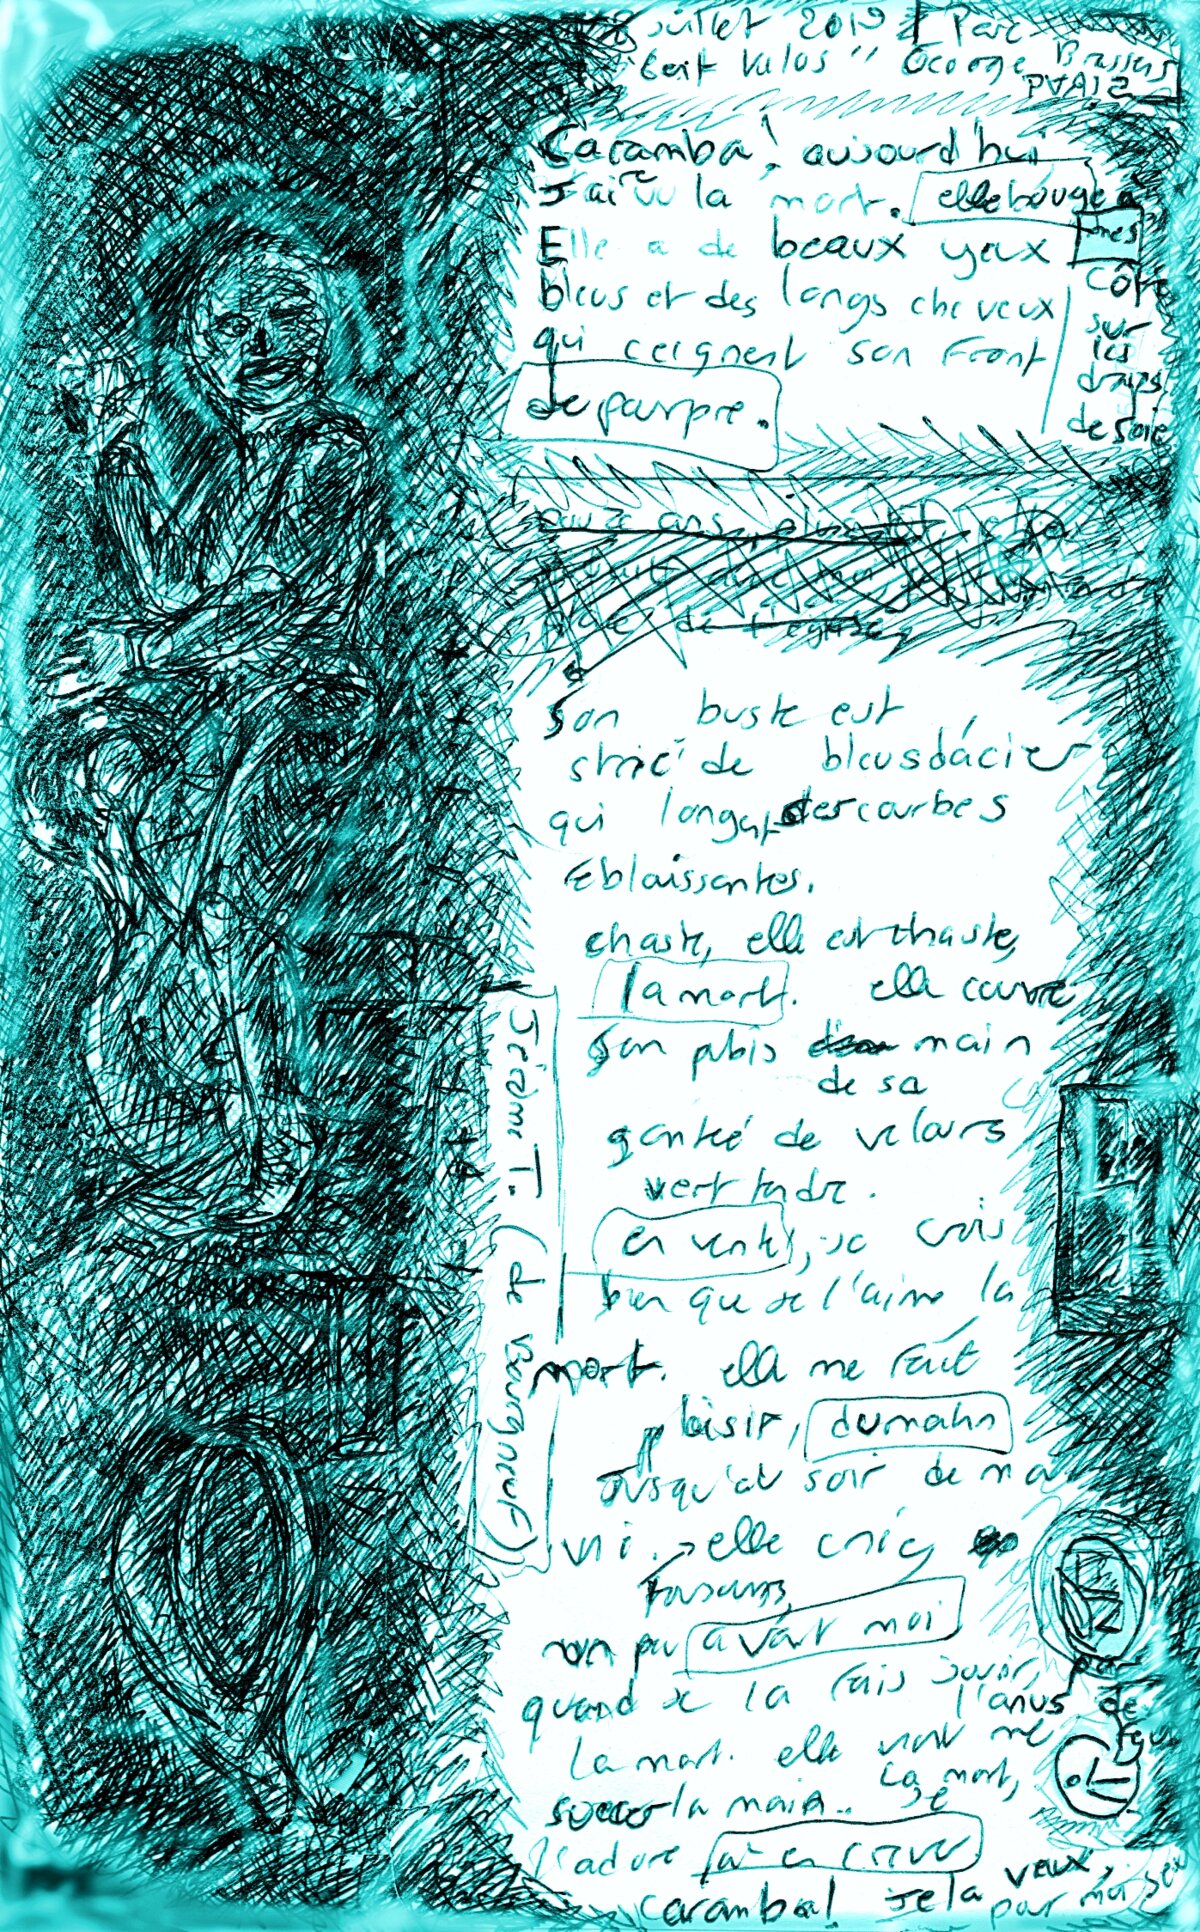 juillet 2019 à Parc
George Brassens
Caramba! aujourd'hui,
J'ai vu la mort. elle bouge à
Elle a de beaux yeux
bleus et des longs cheveux
qui ceignent son front
de pourpre.
mes
côté
sur
les
draps
de soie
ans,
de l'église
Son buste est
strié de bleus d'acier
qui longent des courbes
éblouissantes.
chaste, elle est chaste,
la mort. elle couvre
son pubis main
de sa
gantée de velours
vert tendre.
je crois
bien que je l'aime la
mort. elle me fait
plaisir, du matin
jusqu'au soir de ma
vie. elle crie,
toujours,
un peu avant moi
quand je la fais jouir, par
l'anus de
feu
la mort. elle vient me
la main.. la mort,
je
l'adore à en crever
caramba! Je la veux,
pour moi seul
Jérôme T. (de Bourgneuf)